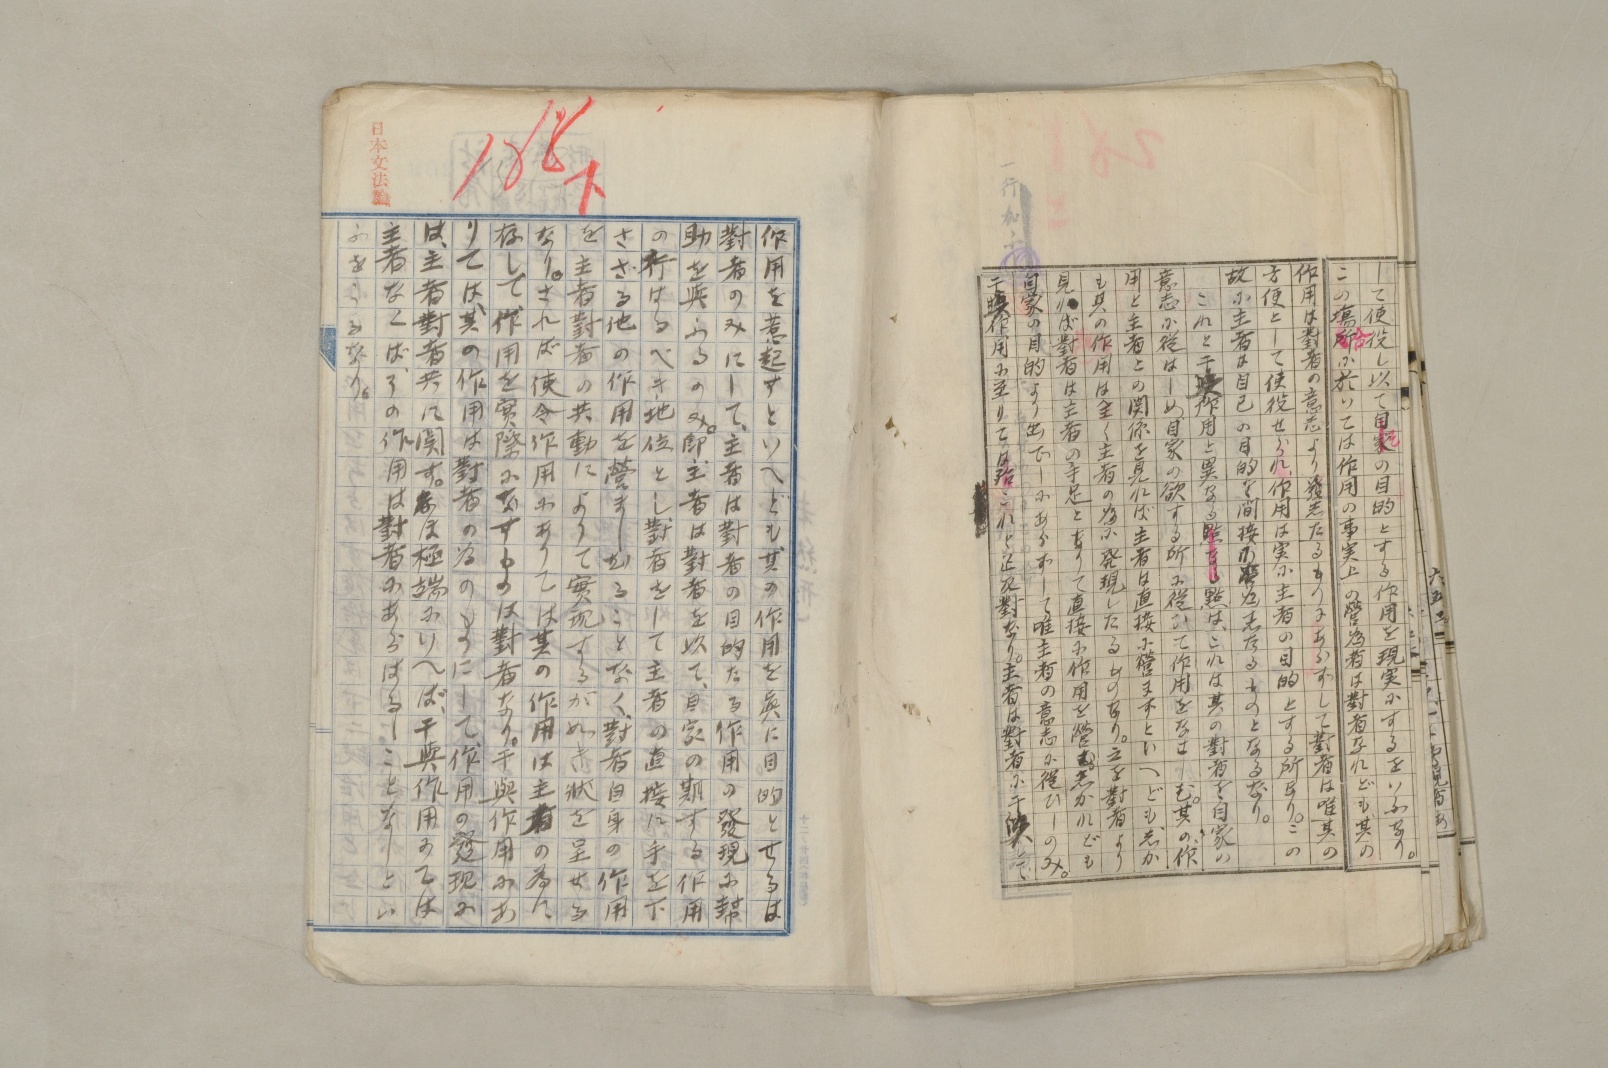 して使役し以て自家の目的とする作用を現実にするをいふなり。
この場合に於いては作用の事実上の営為者は對者なれども其の
作用は對者の意志より發したるものにあらずして對者は唯其の
方便として使役せられ、作用は実に主者の目的とする所なり。この
故に主者は自己の目的を間接に為したるものとなるなり。
これと干與作用と異なる點は、これは其の對者を自家の
意志に從はしめ自家の欲する所に從ひて作用をなさしむ。其の作
用と主者との関係を見れば主者は直接に營まずといへども、しか
も其の作用は全く主者の為に発現したるものなり。之を對者より
見れば對者は主者の手足となりて直接に作用を營むしかれども
自家の目的より出でしにあらずして唯主者の意志に從ひしのみ。
干與作用に至りては殆これと正反對なり。主者は對者に干與して
一行加ふ
作用を惹起すといへども其の作用を真に目的とせるは
對者のみにして、主者は對者の目的たる作用の發現に幇
助を與ふるのみ。即、主者は對者を以て、自家の期する作用
の行はるべき地位とし、對者をして主者の直接に手を下
さざる他の作用を營ましむることなく、對者自身の作用
を主者對者の共動によりて實現するが如き状を呈せる
なり。されば使令作用にありては其の作用は主者の為に
存して、作用を実際になすものは對者なり。干與作用にあ
りては、其の作用は對者の為のものにして、作用の發現に
は、主者對者共に関す。なほ極端にいへば、干與作用にては
主者なくば、その作用は對者にあらはるることなしとい
ふをうるなり。
日本文法論
下